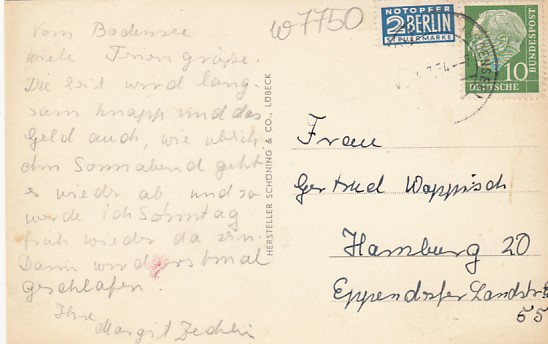 Vom Bodensee
viele Feriengrüße.
Die Zeit wird lang-
sam knapp und das
Geld auch, wie üblich.
Am Sonnabend geht
es wieder ab und so
werde ich Sonntag
früh wieder da sein.
Dann wird erstmal
geschlafen.
Ihre
Margit
W7750
NOTOPFER
2 BERLIN
STEUERMARKE
10
DEUTSCHE
BUNDESPOST
HERSTELLER SCHÖNING & CO., LÜBECK
Frau
Gertrud Wappisch
Hamburg 20
Eppendorfer Landstr
55